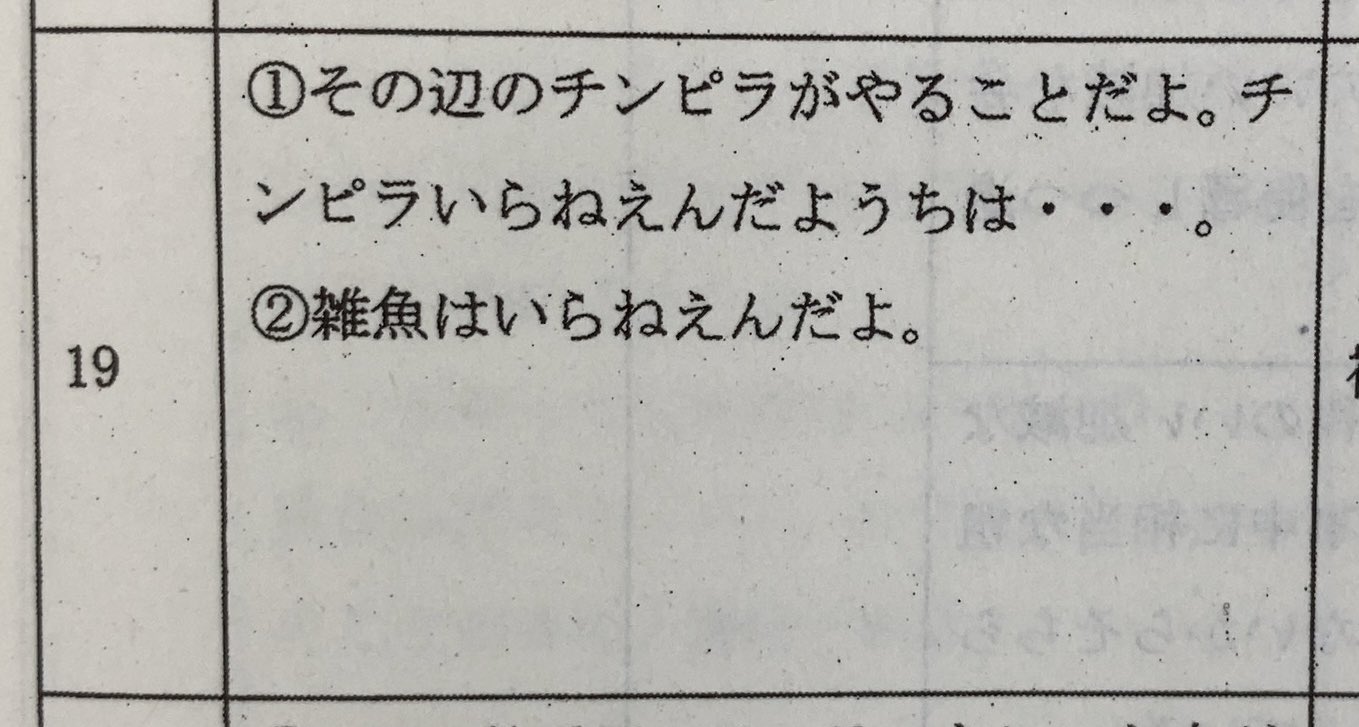 ①その辺のチンピラがやることだよ。チ
ンピラいらねえんだようちは・・・。
19
②雑魚はいらねえんだよ。